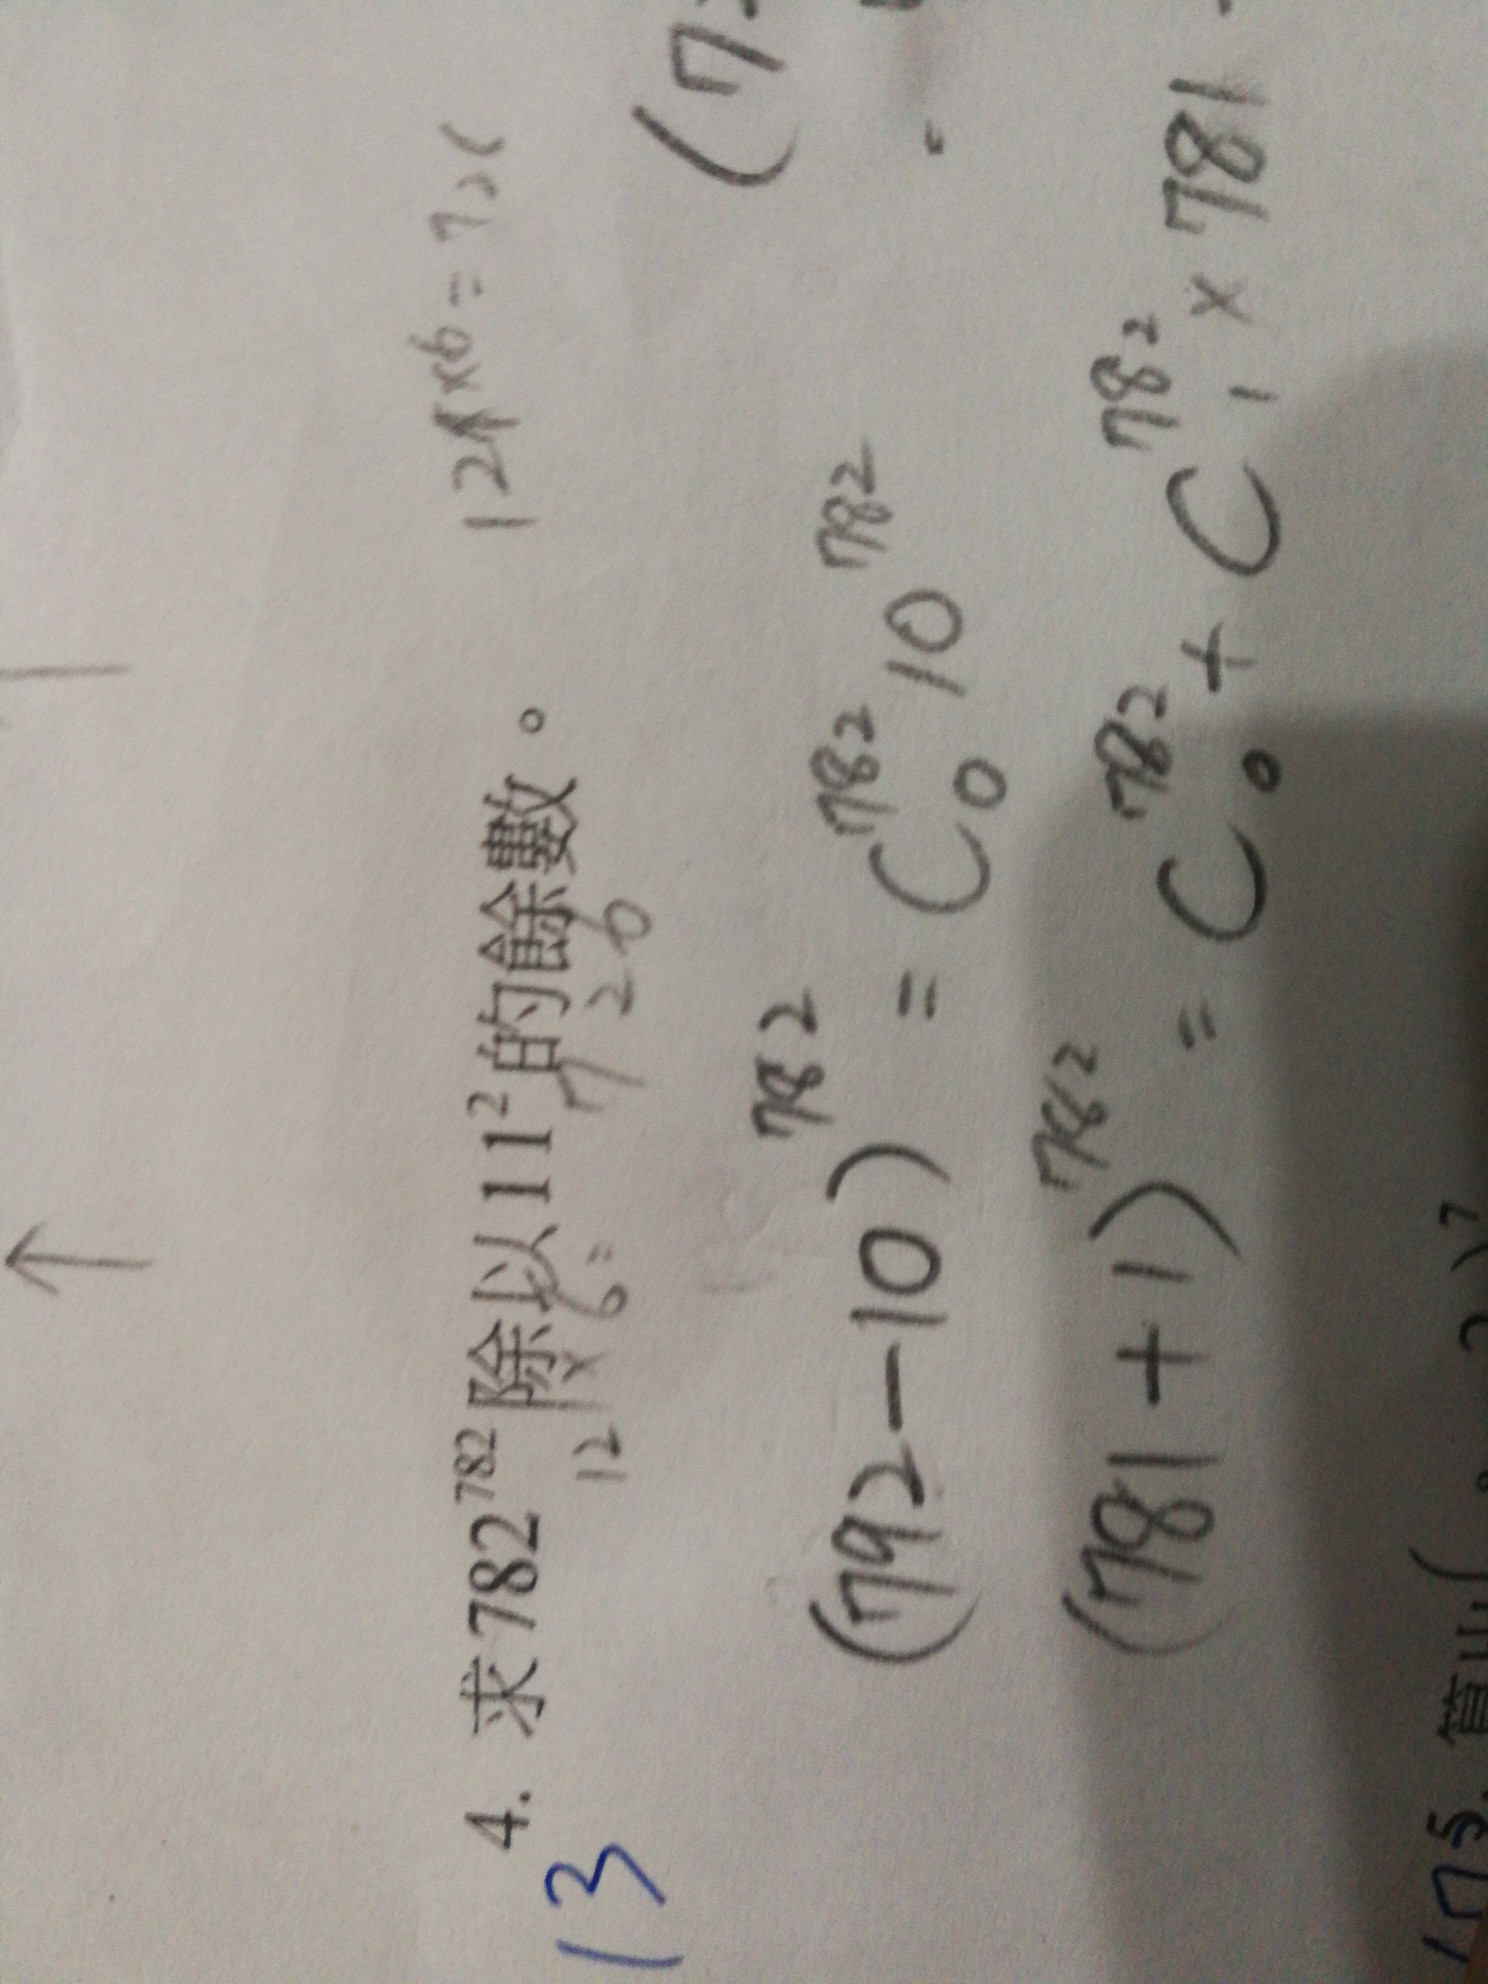 4. 求782^782除以11^2的餘數。
13
121×6=726
121×6=72
(792-10)^782 = C^782_0 10^782
(781+1)^782 = C^782_0 + C^782_1 × 781